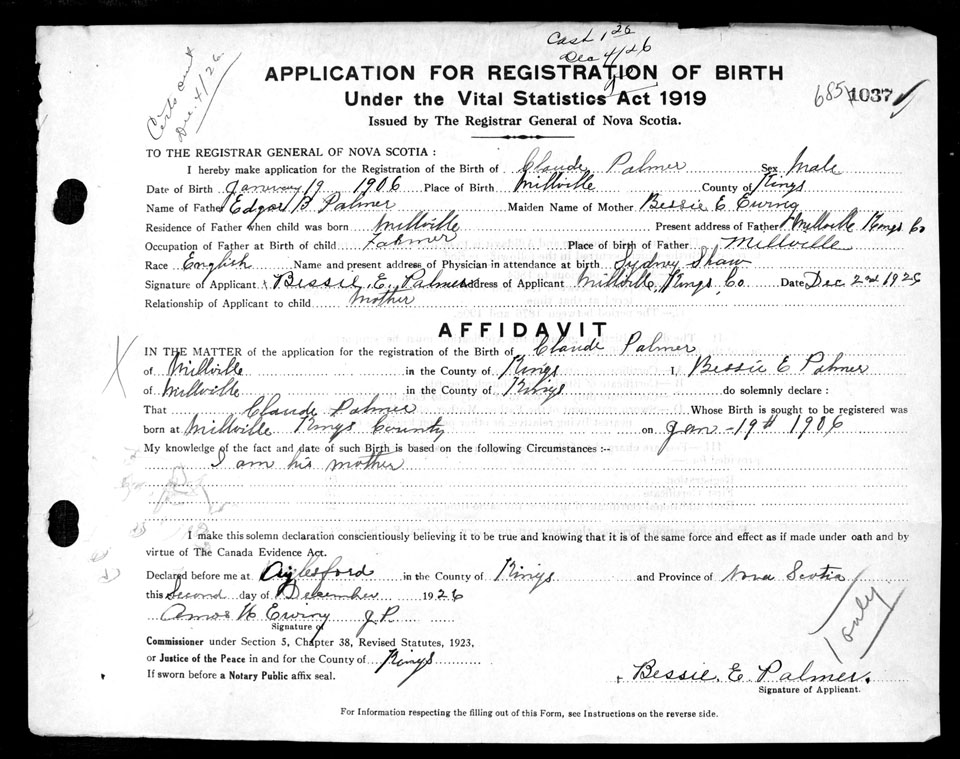 Cash 1 26
Dec 4/26
Certs sent
Dec. 4/26
APPLICATION FOR REGISTRATION OF BIRTH
Under the Vital Statistics Act 1919
685 1037
Issued by The Registrar General of Nova Scotia.
TO THE REGISTRAR GENERAL OF NOVA SCOTIA :
I hereby make application for the Registration of the Birth of Claude Palmer Sex Male
Date of Birth January 19 1906 Place of Birth Millville County of Kings
Name of Father Edgar B Palmer Maiden Name of Mother Bessie E Ewing
Residence of Father when child was born Millville Present address of Father Millville Kings Co
Occupation of Father at Birth of child Farmer Place of birth of Father Millville
Race English Name and present address of Physician in attendance at birth Sydney Shaw
Signature of Applicant Bessie E. Palmer Address of Applicant Millville, Kings, Co Date Dec 2nd 1926
Relationship of Applicant to child Mother
AFFIDAVIT
IN THE MATTER of the application for the registration of the Birth of Claude Palmer
of Millville in the County of Kings I Bessie E Palmer
of Millville in the County of Kings do solemnly declare :
That Claude Palmer Whose Birth is sought to be registered was
born at Millville Kings County on Jan - 19th 1906
My knowledge of the fact and date of such Birth is based on the following Circumstances :--
I am his mother
I make this solemn declaration conscientiously believing it to be true and knowing that it is of the same force and effect as if made under oath and by
virtue of The Canada Evidence Act.
Declared before me at Aylesford in the County of Kings and Province of Nova Scotia
this Second day of December 1926
Amos H Ewing J.P.
Signature of
Commissioner under Section 5, Chapter 38, Revised Statutes, 1923,
or Justice of the Peace in and for the County of Kings
If sworn before a Notary Public affix seal.
1 only
Bessie. E. Palmer.
Signature of Applicant.
For Information respecting the filling out of this Form, see Instructions on the reverse side.